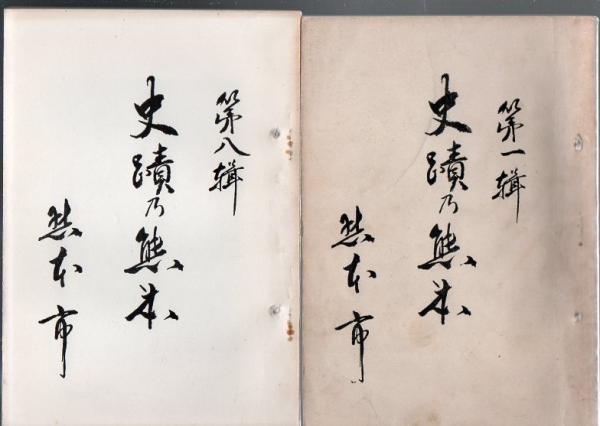 第一輯
史蹟乃熊本
熊本市
第八輯
史蹟乃熊本
熊本市